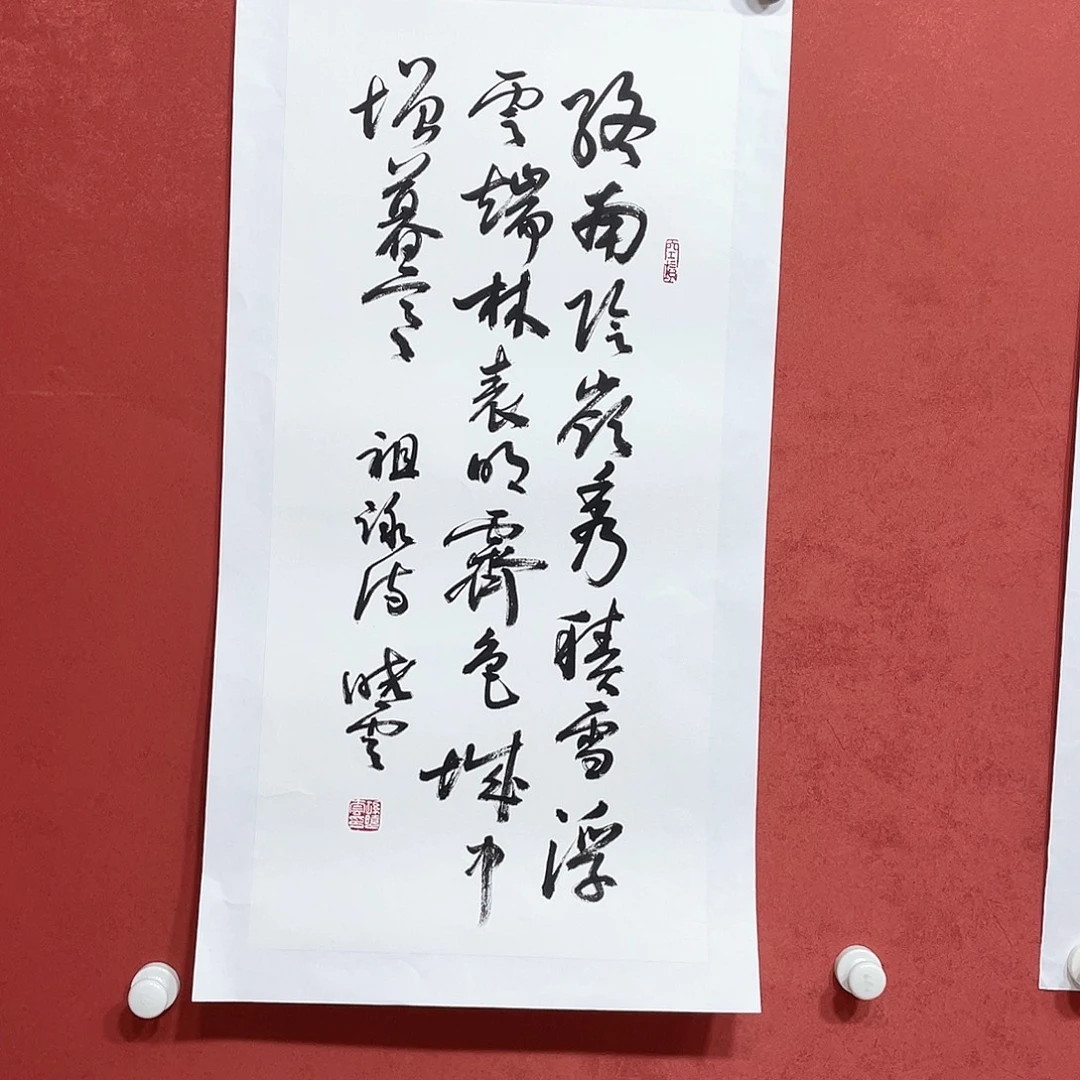 终南阴岭秀積雪浮
雲端林表明霽色城中
增暮寒
祖詠詩 晓雲